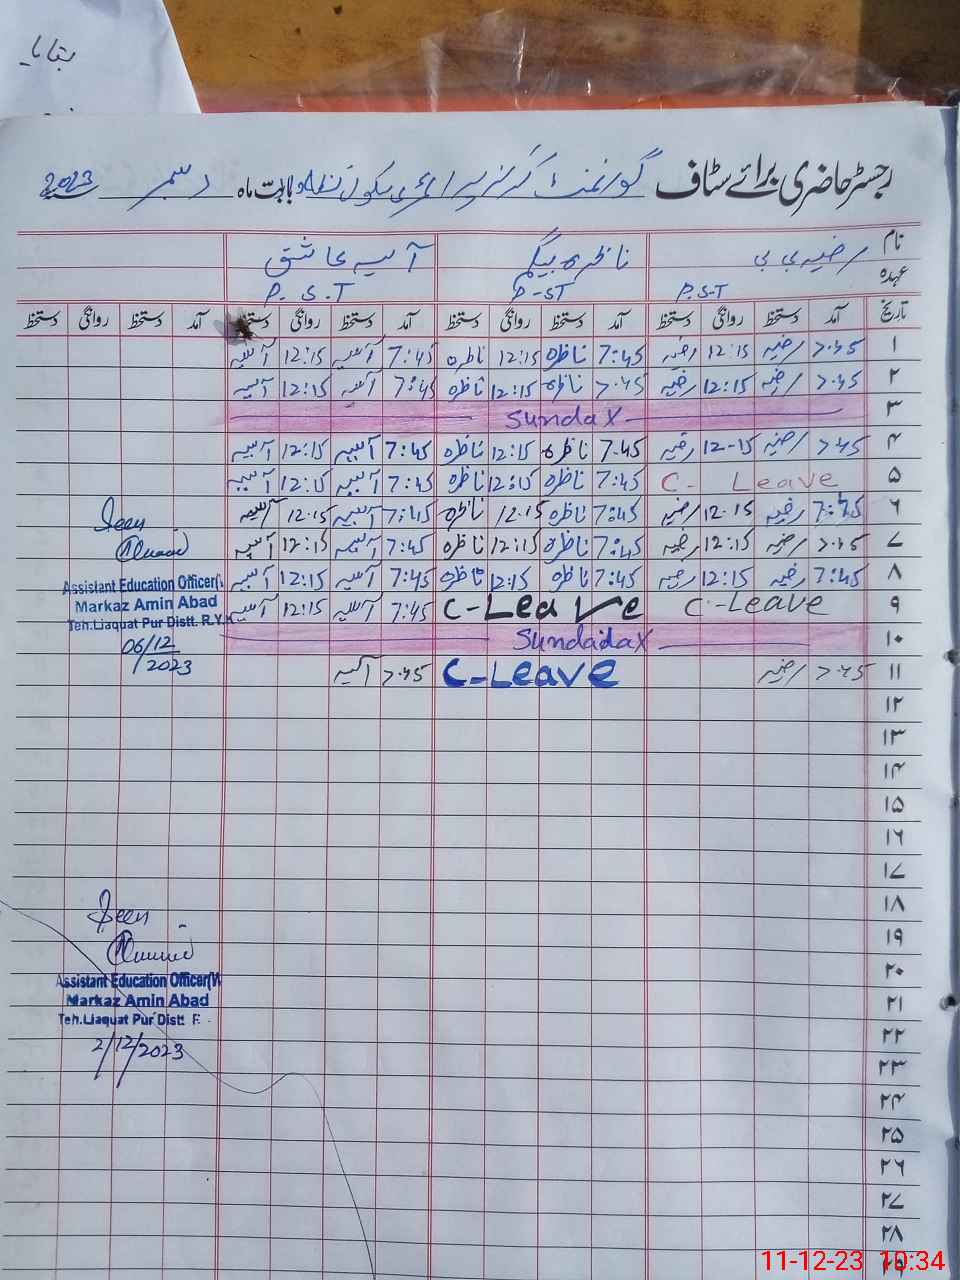 بتایا
رجسٹر حاضری برائے سٹاف گورنمنٹ گرلز پرائمری سکول بابت ماہ دسمبر 2023
نام رضیہ بی بی ناظرہ بیگم آسیہ عاشق
عہدہ P.S.T P-ST P.S.T
تاریخ آمد دستخط روانگی دستخط آمد دستخط روانگی دستخط آمد دستخط روانگی دستخط آمد دستخط روانگی دستخط
۱ 7.45 رضیہ 12:15 رضیہ 7:45 ناظرہ 12:15 ناظرہ 7:45 آسیہ 12:15 آسیہ
۲ 7.45 رضیہ 12:15 رضیہ 7.45 ناظرہ 12:15 ناظرہ 7:45 آسیہ 12:15 آسیہ
۳ SundaX
۴ 7.45 رضیہ 12-15 رضیہ 7.45 ناظرہ 12:15 ناظرہ 7:45 آسیہ 12:15 آسیہ
۵ C- Leave 7:45 ناظرہ 12:15 ناظرہ 7:45 آسیہ 12:15 آسیہ
۶ 7:45 رضیہ 12.15 رضیہ 7:45 ناظرہ 12.15 ناظرہ 7:45 آسیہ 12.15 آسیہ
۷ 7.45 رضیہ 12:15 رضیہ 7:45 ناظرہ 12:15 ناظرہ 7:45 آسیہ 12:15 آسیہ
۸ 7:45 رضیہ 12:15 رضیہ 7:45 ناظرہ 12:15 ناظرہ 7:45 آسیہ 12:15 آسیہ
۹ C-Leave C-Leave 7:45 آسیہ 12:15 آسیہ
۱۰ SundadaX
۱۱ 7.45 رضیہ C-Leave 7.45 آسیہ
۱۲
۱۳
۱۴
۱۵
۱۶
۱۷
۱۸
۱۹
۲۰
۲۱
۲۲
۲۳
۲۴
۲۵
۲۶
۲۷
۲۸
Seen
Assistant Education Officer(W
Markaz Amin Abad
Teh.Liaquat Pur Distt. R.Y.K
06/12/2023
Seen
Assistant Education Officer(W
Markaz Amin Abad
Teh.Liaquat Pur Distt. R
2/12/2023
11-12-23 10:34